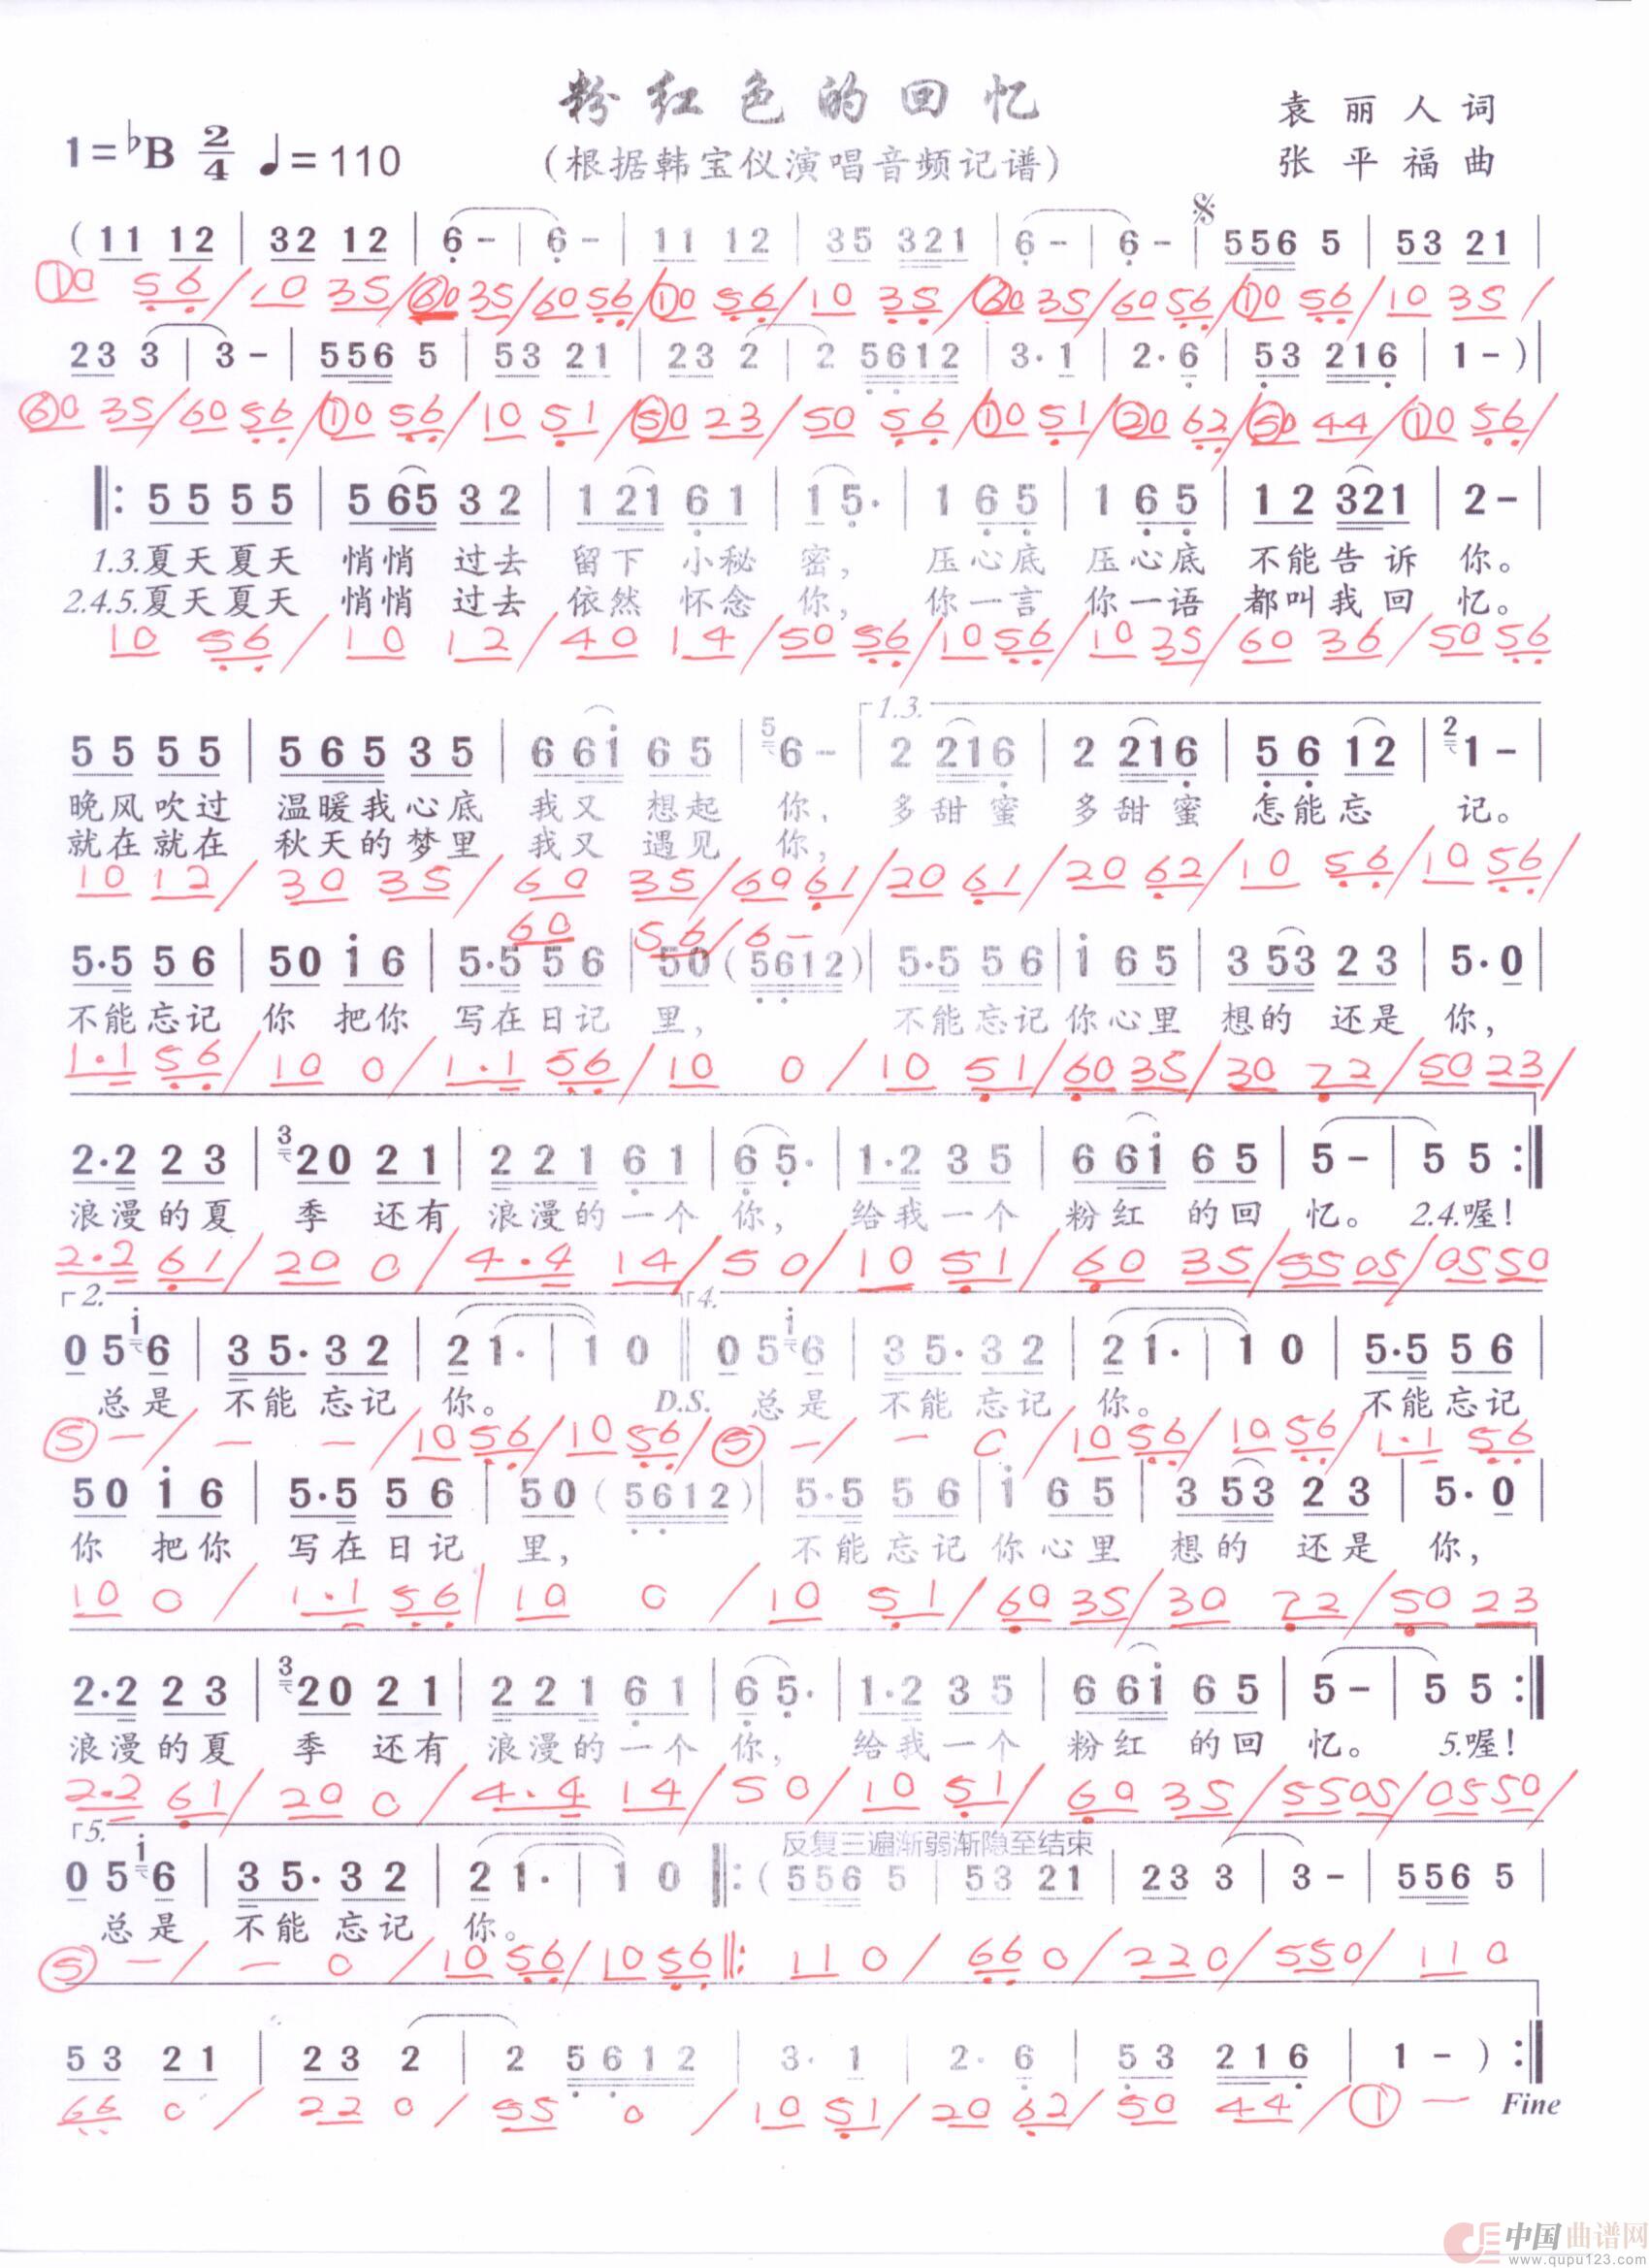 粉红色的回忆
袁丽人词
1=♭B 2/4 ♩=110
(根据韩宝仪演唱音频记谱)
张平福曲
(11 12 | 32 12 | 6 - | 6 - | 11 12 | 35 321 | 6 - | 6 - | 556 5 | 53 21 |
10 56 / 10 35 / 60 35 / 60 56 / 10 56 / 10 35 / 60 35 / 60 56 / 10 56 / 10 35 /
23 3 | 3 - | 556 5 | 53 21 | 23 2 | 2 5612 | 3· 1 | 2· 6 | 53 216 | 1 - ) |
60 35 / 60 56 / 10 56 / 10 51 / 50 23 / 50 56 / 10 51 / 20 62 / 50 44 / 10 56 /
‖: 5 5 5 5 | 5 65 3 2 | 1 21 6 1 | 1 5· | 1 6 5 | 1 6 5 | 1 2 321 | 2 - |
1.3.夏天夏天 悄悄 过去 留下 小秘 密, 压心底 压心底 不能告诉 你。
2.4.5.夏天夏天 悄悄 过去 依然 怀念 你, 你一言 你一语 都叫我回 忆。
10 56 / 10 12 / 40 14 / 50 56 / 10 56 / 10 35 / 60 36 / 50 56
1.3.
5 5 5 5 | 5 6 5 3 5 | 6 6i 6 5 | 5 6 - | 2 216 | 2 216 | 5 6 12 | 2 1 - |
晚风吹过 温暖我心底 我又 想起 你, 多甜蜜 多甜蜜 怎能忘 记。
就在就在 秋天的梦里 我又 遇见 你,
10 12 / 30 35 / 60 35 / 60 61 / 20 61 / 20 62 / 10 56 / 10 56 /
60 56 / 6 -
5·5 5 6 | 50 i 6 | 5·5 5 6 | 50 (5612) | 5·5 5 6 | i 6 5 | 3 53 2 3 | 5· 0 |
不能忘记 你 把你 写在日记 里, 不能忘记你心里 想的 还是 你,
1·1 56 / 10 0 / 1·1 56 / 10 0 / 10 51 / 60 35 / 30 22 / 50 23 /
2·2 2 3 | 3 20 2 1 | 2 2 1 6 1 | 6 5· | 1·2 3 5 | 6 6i 6 5 | 5 - | 5 5 :‖
浪漫的夏 季 还有 浪漫的一个 你, 给我一个 粉红 的回 忆。 2.4.喔!
2·2 61 / 20 0 / 4·4 14 / 50 / 10 51 / 60 35 / 55 05 / 05 50
2. 4.
0 5 i 6 | 3 5· 3 2 | 2 1· | 1 0 ‖ 0 5 i 6 | 3 5· 3 2 | 2 1· | 1 0 | 5·5 5 6 |
总是 不能忘记 你。 D.S. 总是 不能忘记 你。 不能忘记
5 - / - - / 10 56 / 10 56 / 5 - / - 0 / 10 56 / 10 56 / 1·1 56
50 i 6 | 5·5 5 6 | 50 (5612) | 5·5 5 6 | i 6 5 | 3 53 2 3 | 5· 0 |
你 把你 写在日记 里, 不能忘记 你心里 想的 还是 你,
10 0 / 1·1 56 | 10 0 / 10 51 / 60 35 / 30 22 / 50 23
2·2 2 3 | 3 20 2 1 | 2 2 1 6 1 | 6 5· | 1·2 3 5 | 6 6i 6 5 | 5 - | 5 5 :‖
浪漫的夏 季 还有 浪漫的一个 你, 给我一个 粉红 的回 忆。 5.喔!
2·2 61 / 20 0 / 4·4 14 / 50 / 10 51 / 60 35 / 55 05 / 05 50 /
5. 反复三遍渐弱渐隐至结束
0 5 i 6 | 3 5· 3 2 | 2 1· | 1 0 ‖: (556 5 | 53 21 | 23 3 | 3 - | 556 5 |
总是 不能忘记 你。
5 - / - 0 / 10 56 / 10 56 ‖: 11 0 / 66 0 / 22 0 / 55 0 / 11 0
5 3 2 1 | 2 3 2 | 2 5 6 1 2 | 3· 1 | 2· 6 | 5 3 2 1 6 | 1 - ) :‖
66 0 / 22 0 / 55 0 / 10 51 / 20 62 / 50 44 / 1 -
Fine
中国曲谱网
www.qupu123.com